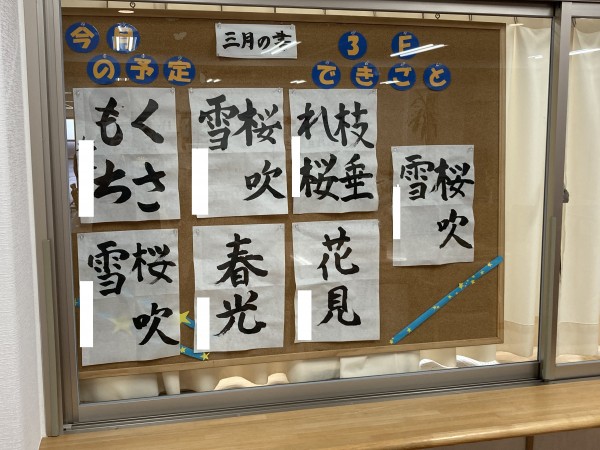 今月
の予定
三月の
3F
できごと
くさ
もち
桜吹
雪
枝垂
れ桜
桜吹
雪
桜吹
雪
春光
花見